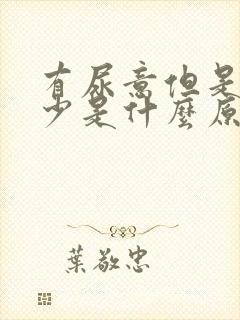 有尿意但是
少是什麼原
葉敬忠